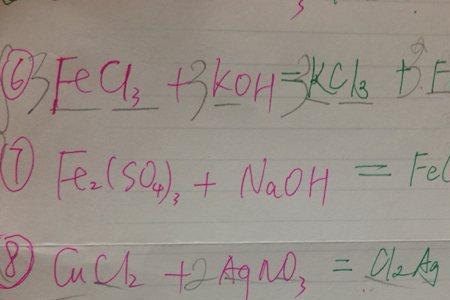 ⑥ 3FeCl₃ + 3KOH = 3KCl₃ + 3F
⑦ Fe₂(SO₄)₃ + NaOH = Fe
⑧ CuCl₂ + 2AgNO₃ = Cl₂Ag